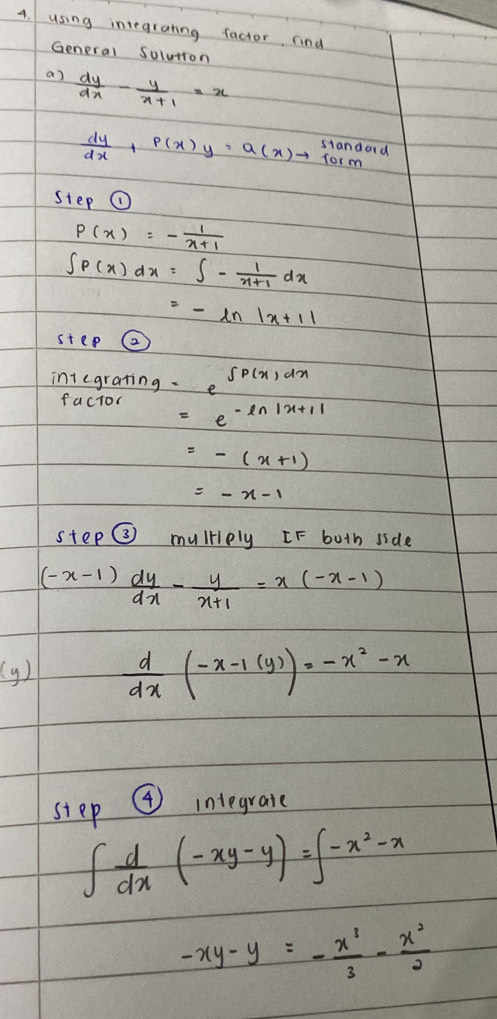 4. using integrating factor, find
General Solution
a) dy/dx - y/x+1 = x
dy/dx + P(x) y = Q(x) → standard form
Step ①
P(x) = - 1/x+1
∫P(x) dx = ∫ - 1/x+1 dx
= - ln |x+1|
step ②
integrating factor = e^∫P(x) dx
= e^-ln|x+1|
= - (x+1)
= -x-1
step ③ multiply IF both side
(-x-1) dy/dx - y/x+1 = x (-x-1)
(y) d/dx (-x-1(y)) = -x² - x
step ④ integrate
∫ d/dx (-xy-y) = ∫ -x² - x
-xy-y = - x³/3 - x²/2